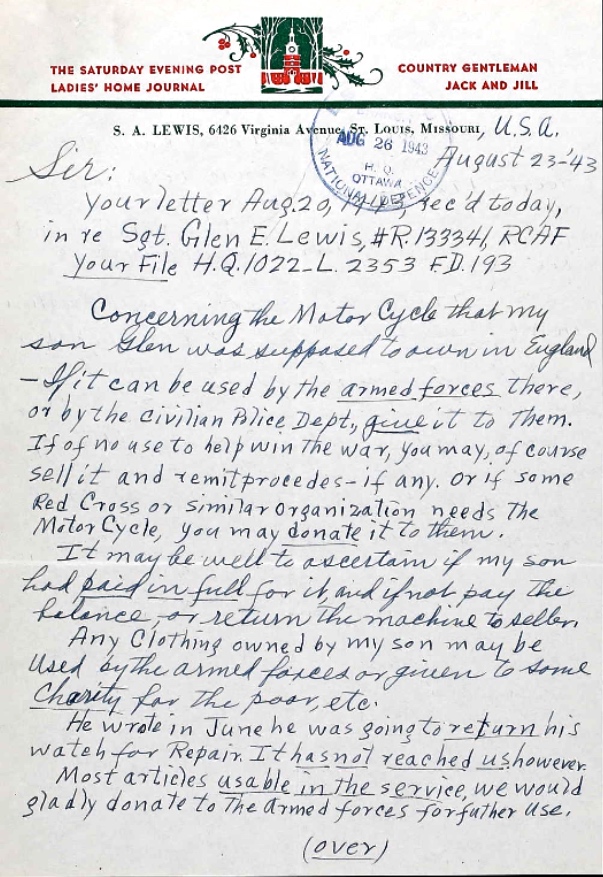 THE SATURDAY EVENING POST
LADIES' HOME JOURNAL
COUNTRY GENTLEMAN
JACK AND JILL
S. A. LEWIS, 6426 Virginia Avenue, St. Louis, Missouri, U.S.A.
AUG 26 1943
H. Q.
OTTAWA
NATIONAL DEFENCE
August 23-'43
Sir:
Your letter Aug. 20, 1943, rec'd today,
in re Sgt. Glen E. Lewis, #R.133341, RCAF
Your File H.Q. 1022-L. 2353 F.D. 193
Concerning the Motor Cycle that my
son Glen was supposed to own in England
- If it can be used by the armed forces there,
or by the civilian Police Dept., give it to Them.
If of no use to help win the war, you may, of course
sell it and remit procedes - if any. Or if some
Red Cross or similar organization needs the
Motor Cycle, you may donate it to them.
It may be well to ascertain if my son
had paid in full for it, and if not pay the
balance, or return the machine to seller.
Any Clothing owned by my son may be
Used by the armed forces or given to some
Charity for the poor, etc.
He wrote in June he was going to return his
watch for Repair. It has not reached us however.
Most articles usable in the service, we would
gladly donate to the Armed forces for futher Use.
(over)